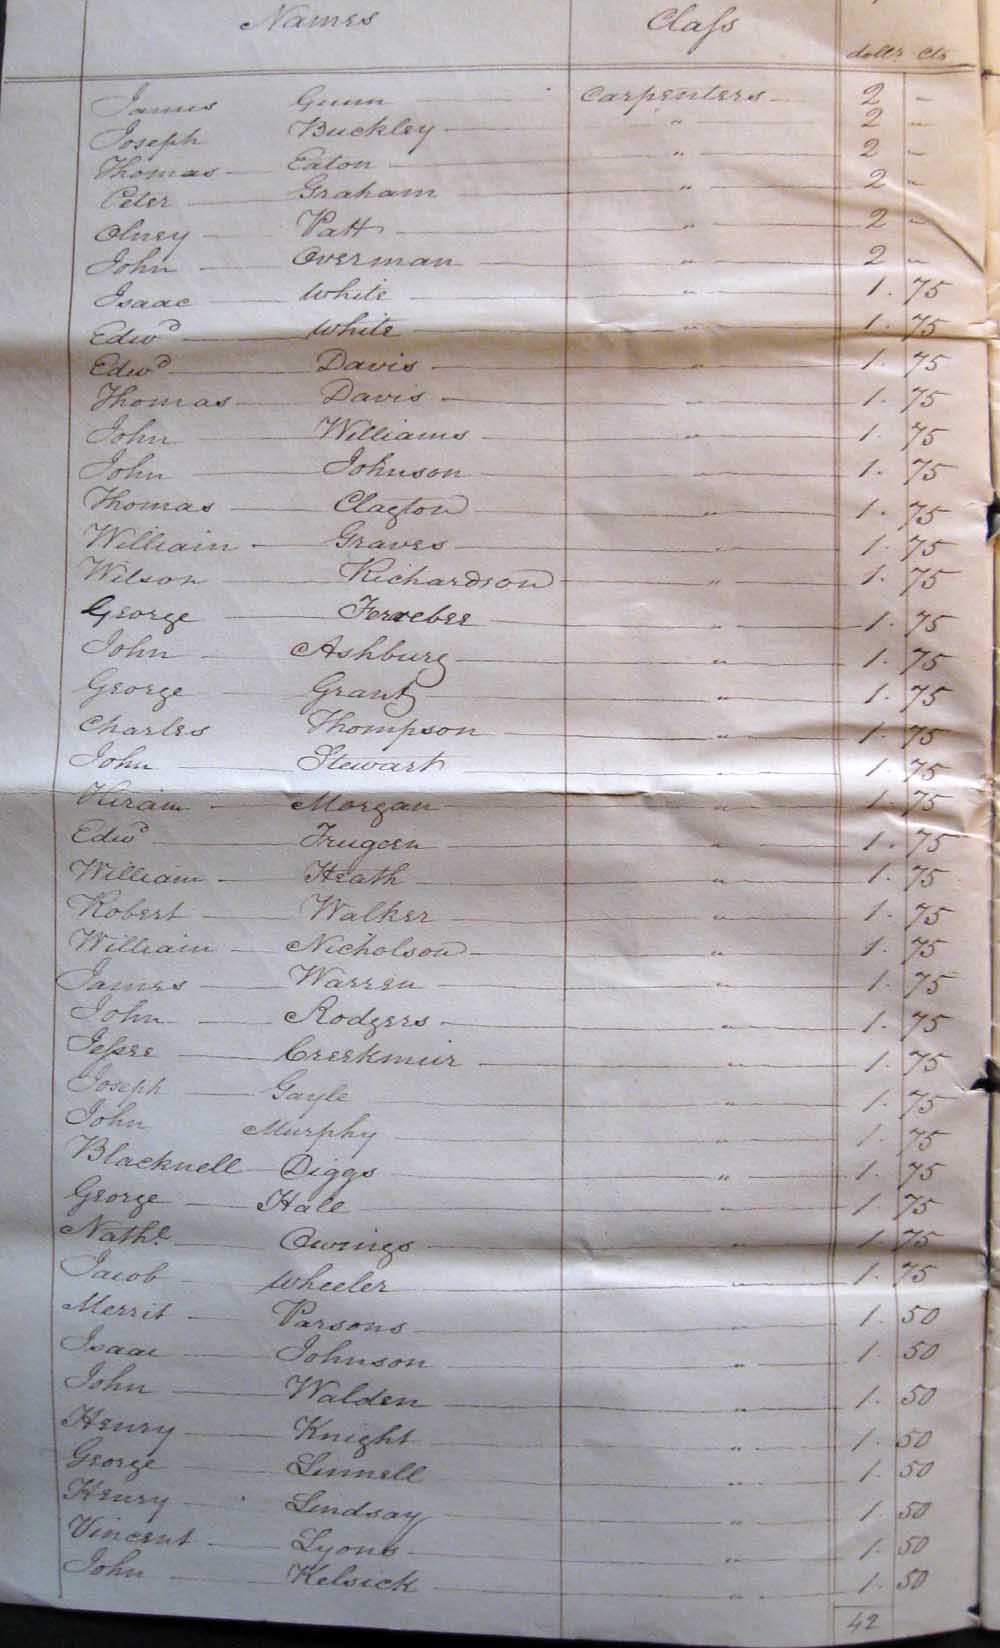 Names Class
dolls cts
James Gunn Carpenters 2 -
Joseph Buckley " 2 -
Thomas Eaton " 2 -
Peter Graham " 2 -
Olney Patt " 2 -
John Overman " 2 -
Isaac White " 1. 75
Edwd White " 1. 75
Edwd Davis " 1. 75
Thomas Davis " 1. 75
John Williams " 1. 75
John Johnson " 1. 75
Thomas Clayton " 1. 75
William Graves " 1. 75
Wilson Richardson " 1. 75
George Ferrebee " 1. 75
John Ashburg " 1. 75
George Grant " 1. 75
Charles Thompson " 1. 75
John Stewart " 1. 75
Hiram Morgan " 1. 75
Edwd " 1. 75
William Heath " 1. 75
Robert Walker " 1. 75
William Nicholson " 1. 75
James Warren " 1. 75
John Rodgers " 1. 75
Jessee Creekmuir " 1. 75
Joseph Gayle " 1. 75
John Murphy " 1. 75
Blacknell Diggs " 1. 75
George Hale " 1. 75
Nathl Owings " 1. 75
Jacob Wheeler " 1. 75
Merrit Parsons " 1. 50
Isaac Johnson " 1. 50
John Walden " 1. 50
Henry Knight " 1. 50
George Linnell " 1. 50
Henry Lindsay " 1. 50
Vincent Lyons " 1. 50
John Kelsick " 1. 50
42